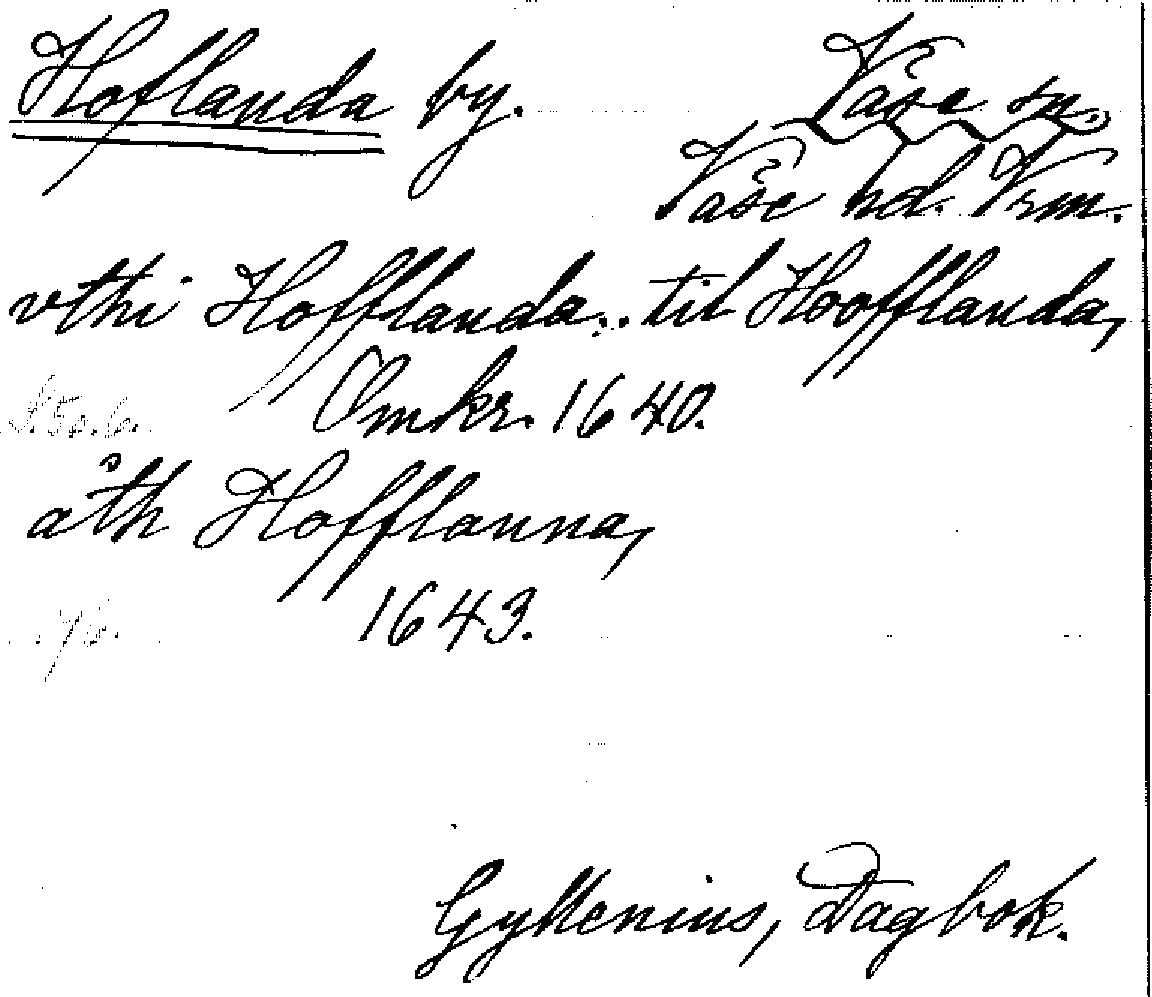 Hoflanda by.
Väse sn.
Väse hd. Vrm.
vthi Hofflanda... til Hoofflanda,
Omkr. 1640.
åth Hofflanna,
1643.
Gyllenius, Dagbok.